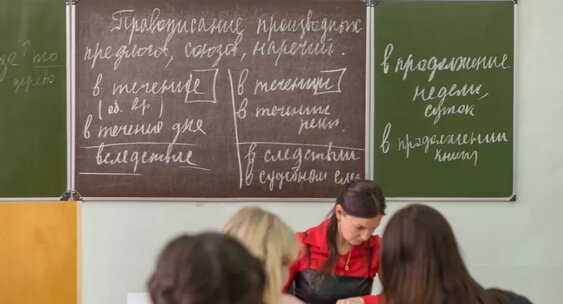 за то
дерево
Правописание производных
предлогов, союзов, наречий.
в течение
(об. вр.)
в течение дня
вследствие
в течении
в течении
реки
в следствии
в судебном след
в продолжение
недели,
суток
в продолжении
книги